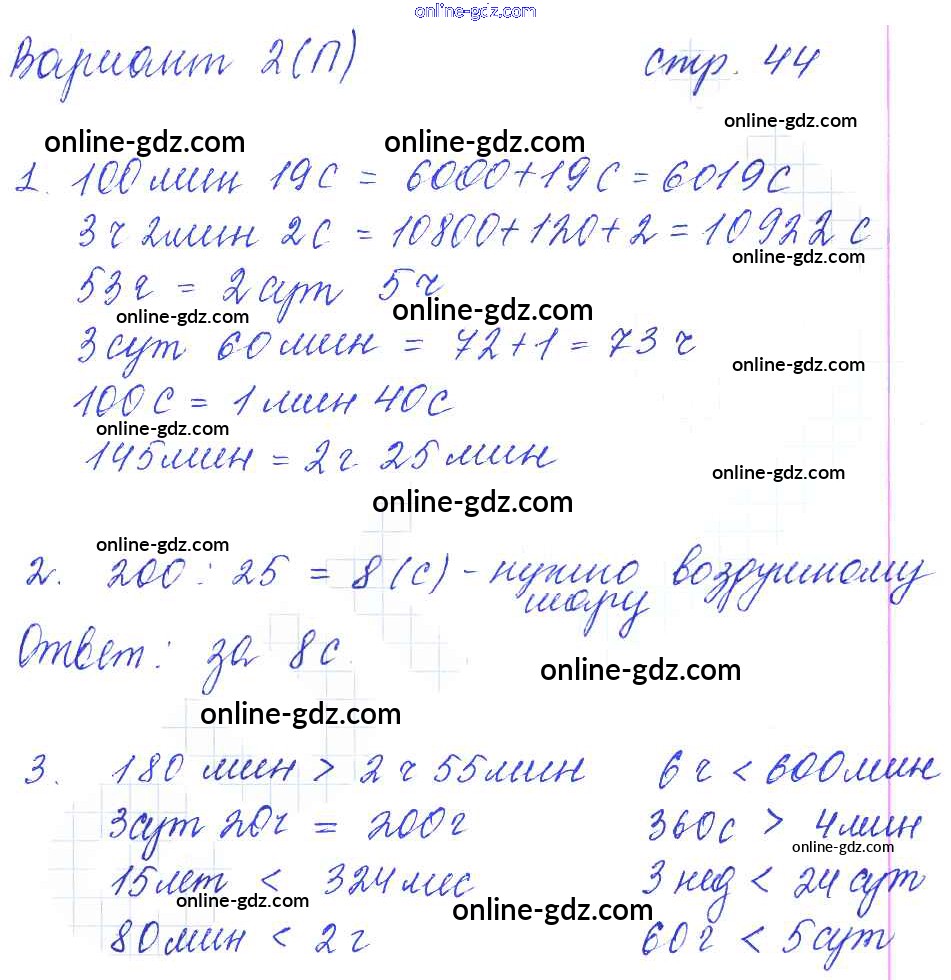 online-gdz.com
Вариант 2(П) стр. 44
online-gdz.com
online-gdz.com online-gdz.com
1. 100 мин 19 с = 6000+19 с = 6019 с
3 ч 2 мин 2 с = 10800+120+2 = 10922 с
online-gdz.com
53 ч = 2 сут 5 ч
online-gdz.com online-gdz.com
3 сут 60 мин = 72+1 = 73 ч
online-gdz.com
100 с = 1 мин 40 с
online-gdz.com
145 мин = 2 ч 25 мин
online-gdz.com
online-gdz.com
online-gdz.com
2. 200 : 25 = 8 (с) - нужно воздушному
шару
Ответ: за 8 с.
online-gdz.com
online-gdz.com
3. 180 мин > 2 ч 55 мин 6 ч < 600 мин
3 сут 20 ч = 200 ч 360 с > 4 мин
online-gdz.com
15 лет < 324 мес 3 нед < 24 сут
online-gdz.com online-gdz.com
80 мин < 2 ч 60 ч < 5 сут